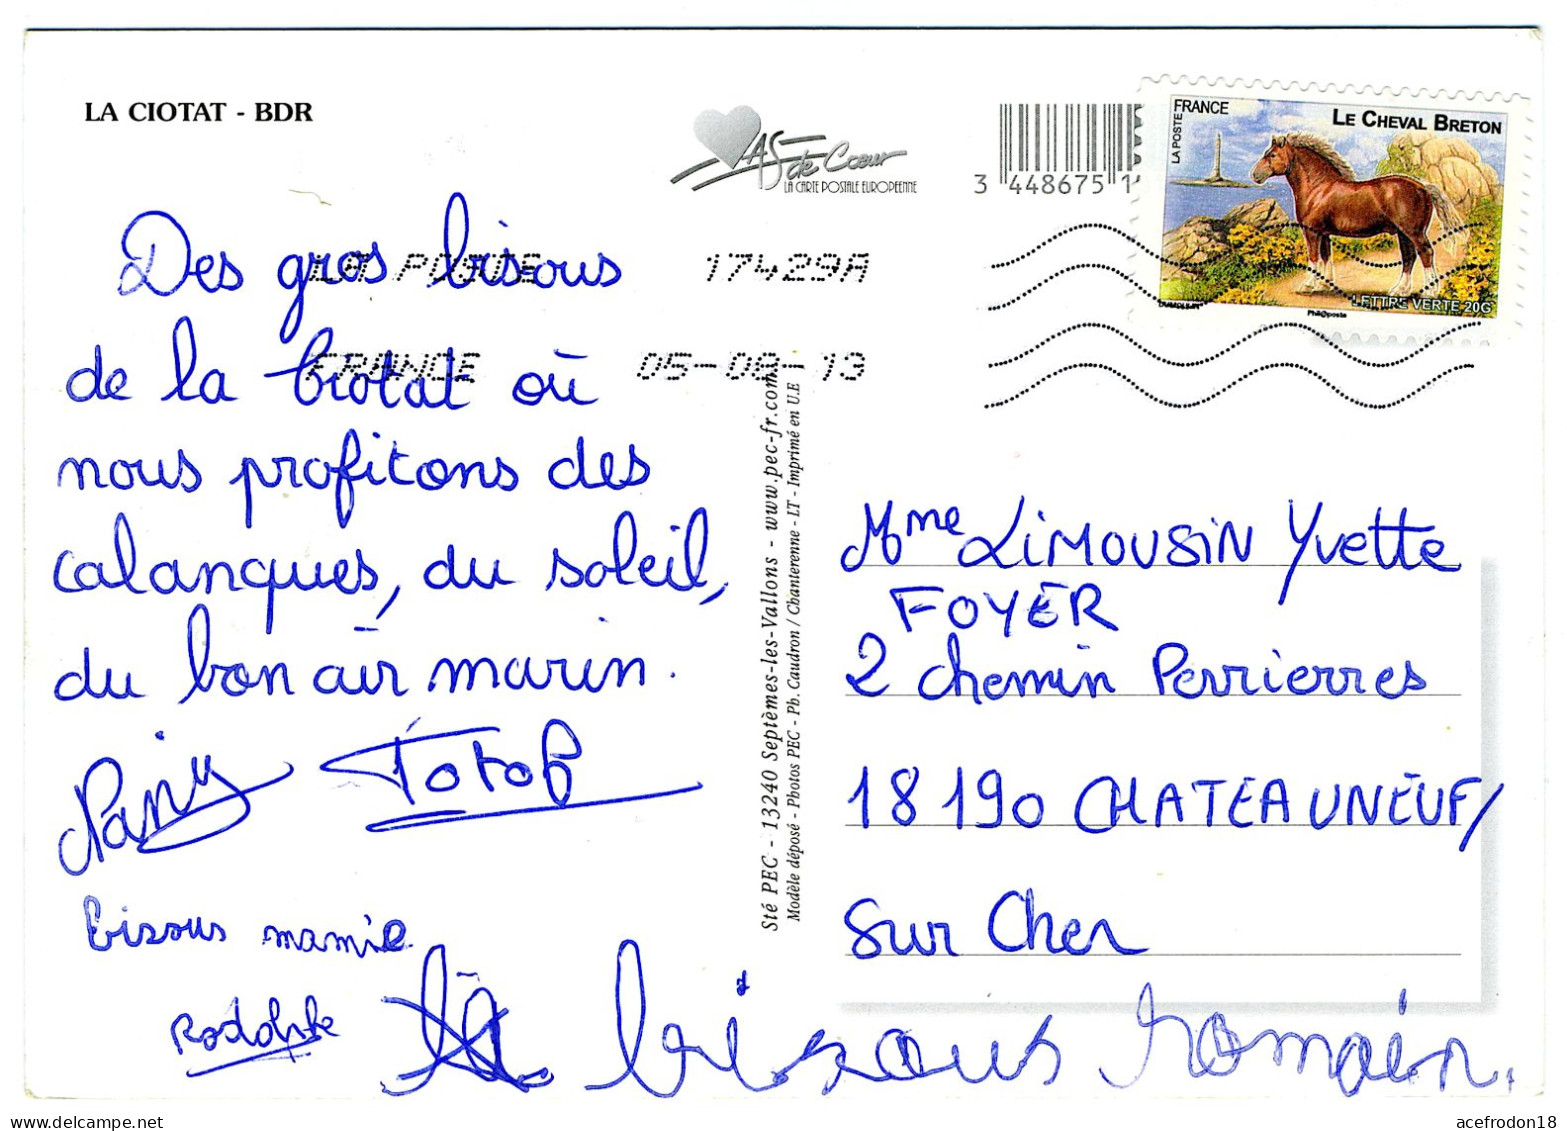 LA CIOTAT - BDR
AS de Cœur
LA CARTE POSTALE EUROPEENNE
3 448675 1
LA POSTE FRANCE
LE CHEVAL BRETON
LETTRE VERTE 20G
Phil@poste
LA POSTE 17429A
FRANCE 05-08-13
Des gros bisous
de la Ciotat où
nous profitons des
calanques, du soleil,
du bon air marin.
Totof
bisous mamie
Rodolphe
bisous romain.
Sté PEC - 13240 Septèmes-les-Vallons - www.pec-fr.com
Modèle déposé - Photos PEC - Ph. Caudron / Chanterenne - LT - Imprimé en U.E
Mme LIMOUSIN Yvette
FOYER
2 chemin Perrierres
18190 CHATEAUNEUF/
Sur Cher
acefrodon18